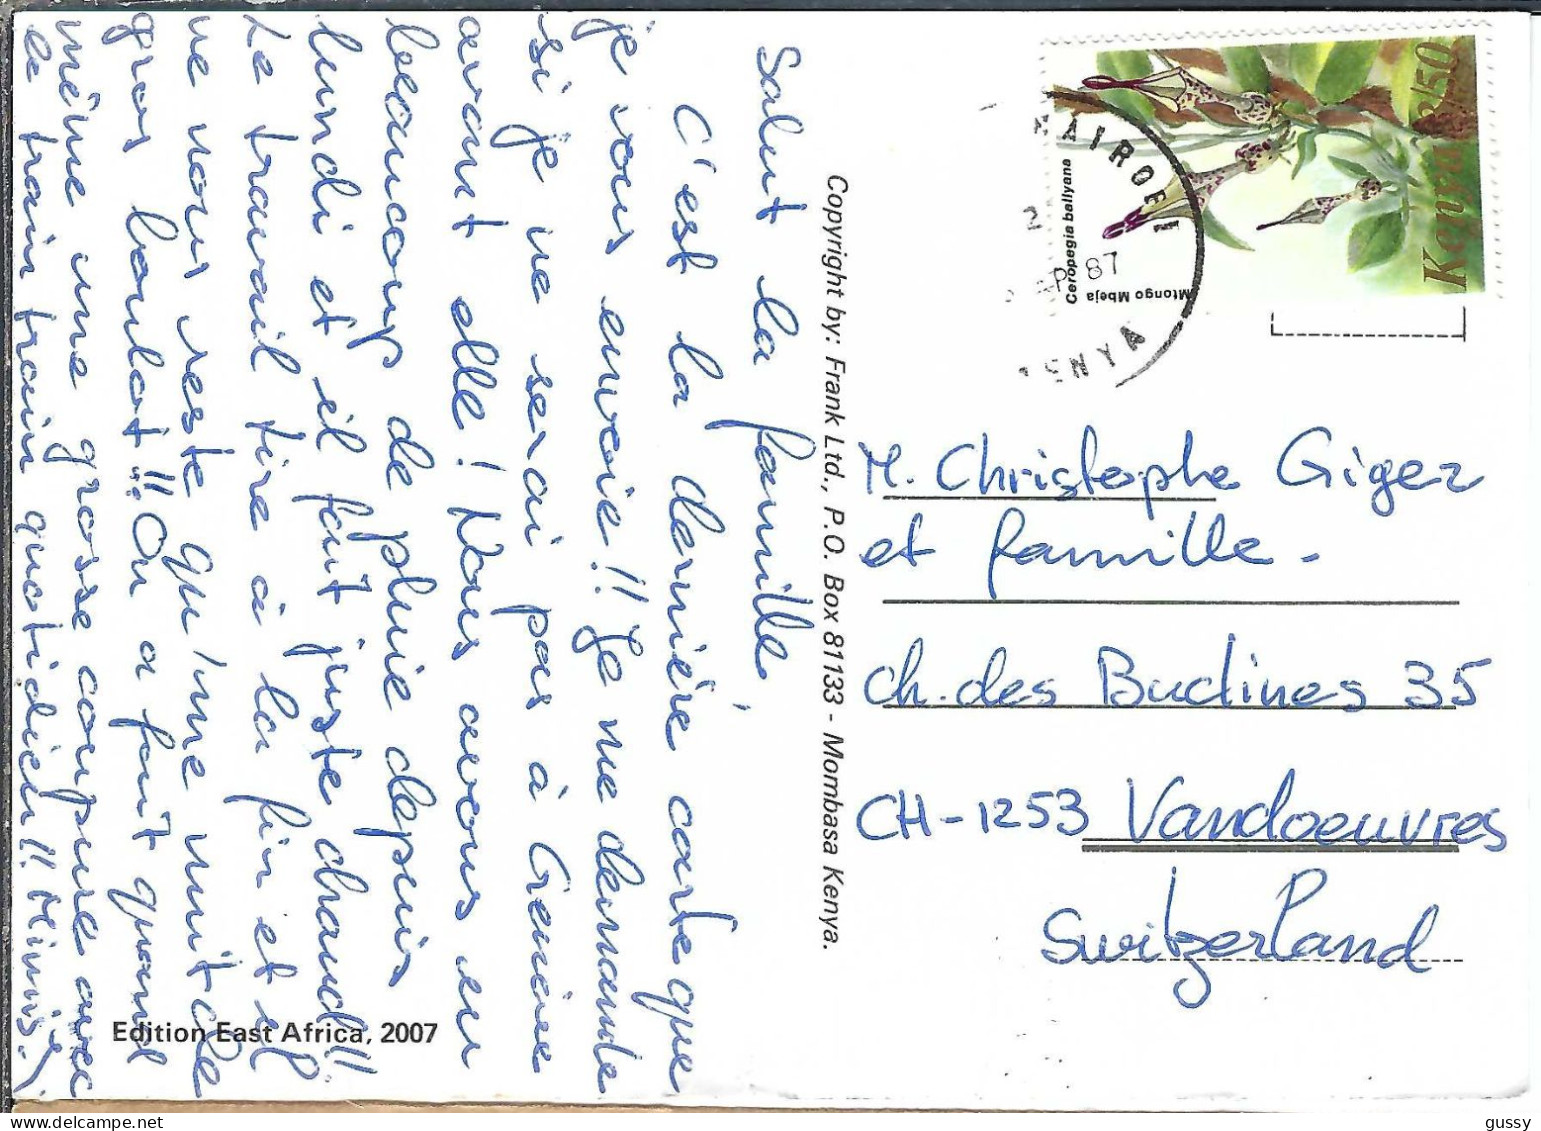 Salut la famille,
C'est la dernière carte que
je vous envoie!! Je me demande
si je ne serai pas à Genève
avant elle! Nous avons eu
beaucoup de pluie depuis
lundi et il fait juste chaud!!
Le travail tire à la fin et il
ne nous reste qu'une nuit de
gros boulot!! On a fait quand
même une grosse coupure avec
le train train quotidien!!
Copyright by: Frank Ltd., P.O. Box 81133 - Mombasa Kenya.
Edition East Africa, 2007
Kenya 3/50
Ceropegia ballyana
Mtongo Mbeja
NAIROBI
87
KENYA
M. Christophe Giger
et famille.
ch. des Budines 35
CH-1253 Vandoeuvres
Switzerland
gussy